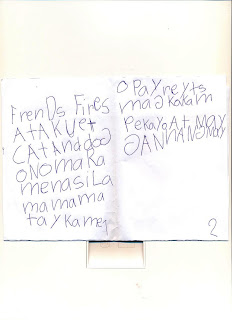 Frends Fires
AtAkUet
CAtAnddog
ONOMaKa
menasiLa
mamama
taykamey
OPAyneyts
magkakam
pekayqAt MAY
2